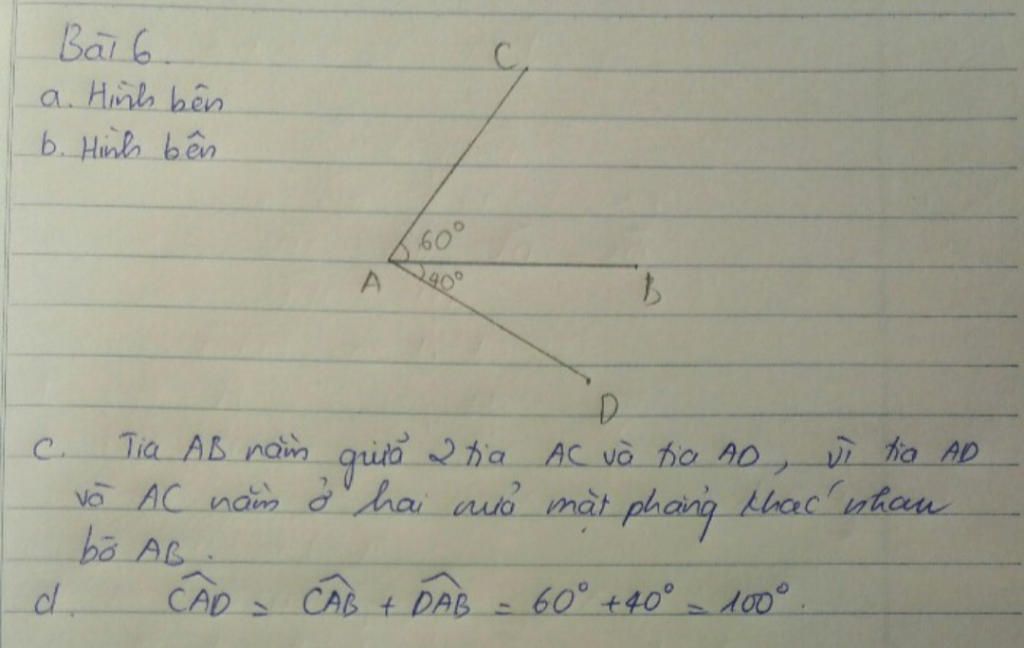 Bài 6.
a. Hình bên
b. Hình bên
C
60°
A
40°
B
D
c. Tia AB nằm giữa 2 tia AC và tia AD, vì tia AD
và AC nằm ở hai nửa mặt phẳng khác nhau
bờ AB.
d. \widehat{CAD} = \widehat{CAB} + \widehat{DAB} = 60° + 40° = 100°.